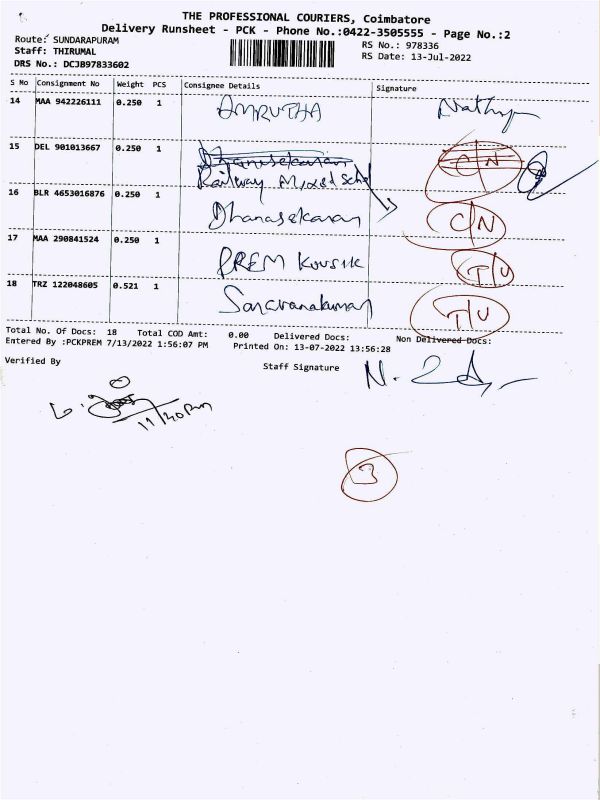 THE PROFESSIONAL COURIERS, Coimbatore
Delivery Runsheet - PCK - Phone No.:0422-3505555 - Page No.:2
Route: SUNDARAPURAM
RS No.: 978336
Staff: THIRUMAL
RS Date: 13-Jul-2022
DRS No.: DCJB97833602
S No Consignment No Weight PCS Consignee Details Signature
14 MAA 942226111 0.250 1 AMRUTHA
15 DEL 901013667 0.250 1 Dhanasekaran C/N
Railway Mixed Schol
16 BLR 4653016876 0.250 1 Dhanasekaran C/N
17 MAA 290841524 0.250 1 PREM KOUSIK T/U
18 TRZ 122048605 0.521 1 Saravanakumar T/U
Total No. Of Docs: 18 Total COD Amt: 0.00 Delivered Docs: Non Delivered Docs:
Entered By :PCKPREM 7/13/2022 1:56:07 PM Printed On: 13-07-2022 13:56:28
Verified By
Staff Signature
3